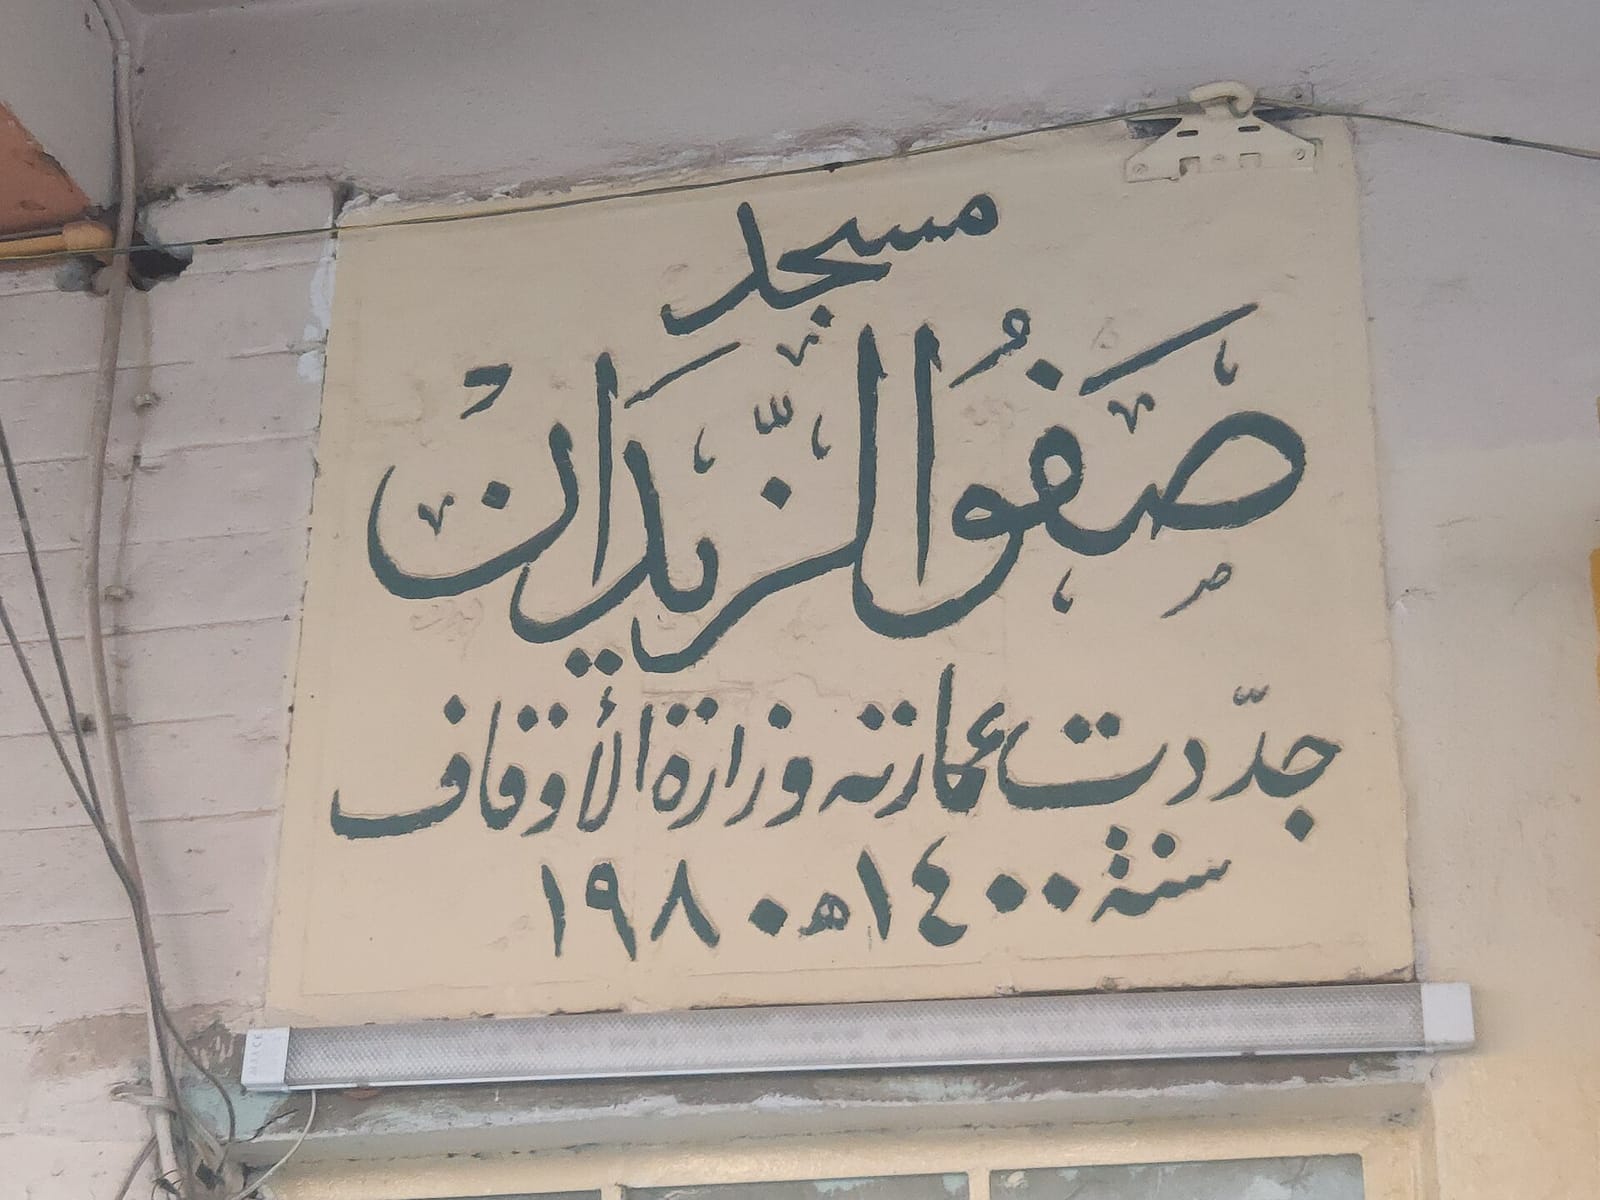 مسجد
صَفُو الزَّيدَان
جدّدت عمارته وزارة الأوقاف
سنة ١٤٠٠هـ ١٩٨٠